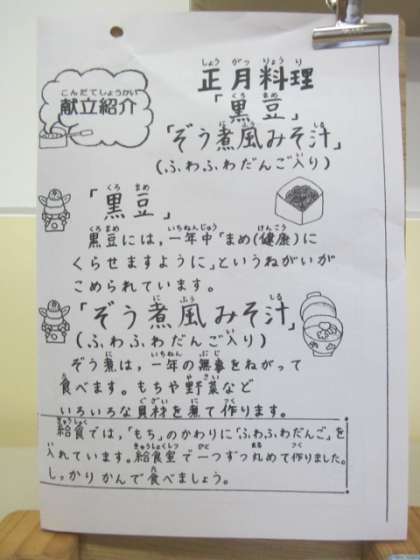 こんだてしょうかい
献立紹介
しょうがつりょうり
正月料理
くろまめ
「黒豆」
にふう しる
「ぞう煮風みそ汁」
(ふわふわだんご入り)
くろ まめ
「黒豆」
くろまめ いちねんじゅう けんこう
黒豆には,一年中「まめ(健康)に
くらせますように」というねがいが
こめられています。
にふう しる
「ぞう煮風みそ汁」
い
(ふわふわだんご入り)
に いちねん ぶじ
ぞう煮は,一年の無事をねがって
た やさい
食べます。もちや野菜など
ぐざい に つく
いろいろな具材を煮て作ります。
きゅうしょく
給食では,「もち」のかわりに「ふわふわだんご」を
い きゅうしょくしつ ひと まる つく
入れています。給食室で一つずつ丸めて作りました。
た
しっかりかんで食べましょう。